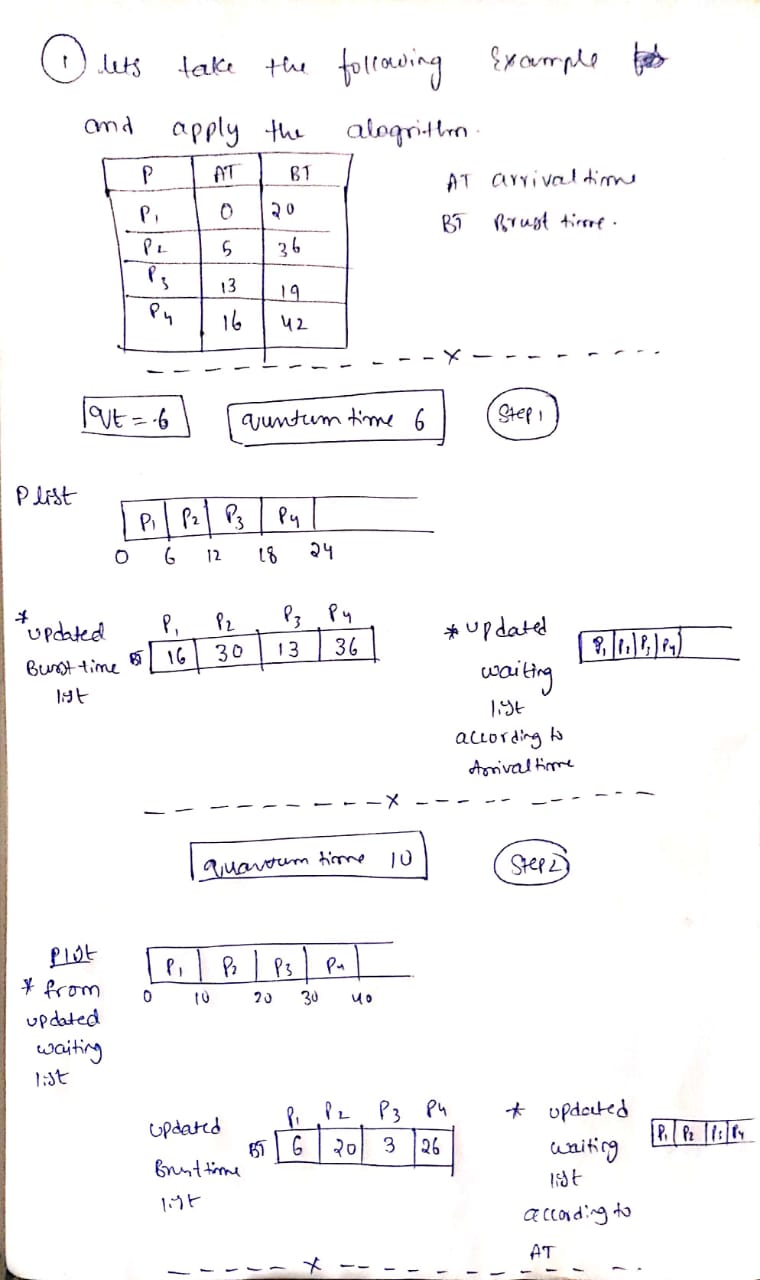 1 lets take the following Example
and apply the alogrithm.
P AT BT
P1 0 20
P2 5 36
P3 13 19
P4 16 42
AT arrival time
BT Brust time.
x
qt = 6
quntum time 6
Step 1
P list
P1 P2 P3 P4
0 6 12 18 24
* updated
Burst time
list
P1 P2 P3 P4
BT 16 30 13 36
* updated
waiting
list
according to
Arrival time
P1 P2 P3 P4
x
quantum time 10
Step 2
Plist
* from
updated
waiting
list
P1 P2 P3 P4
0 10 20 30 40
updated
Brust time
list
P1 P2 P3 P4
BT 6 20 3 26
* updated
waiting
list
according to
AT
P1 P2 P3 P4
x